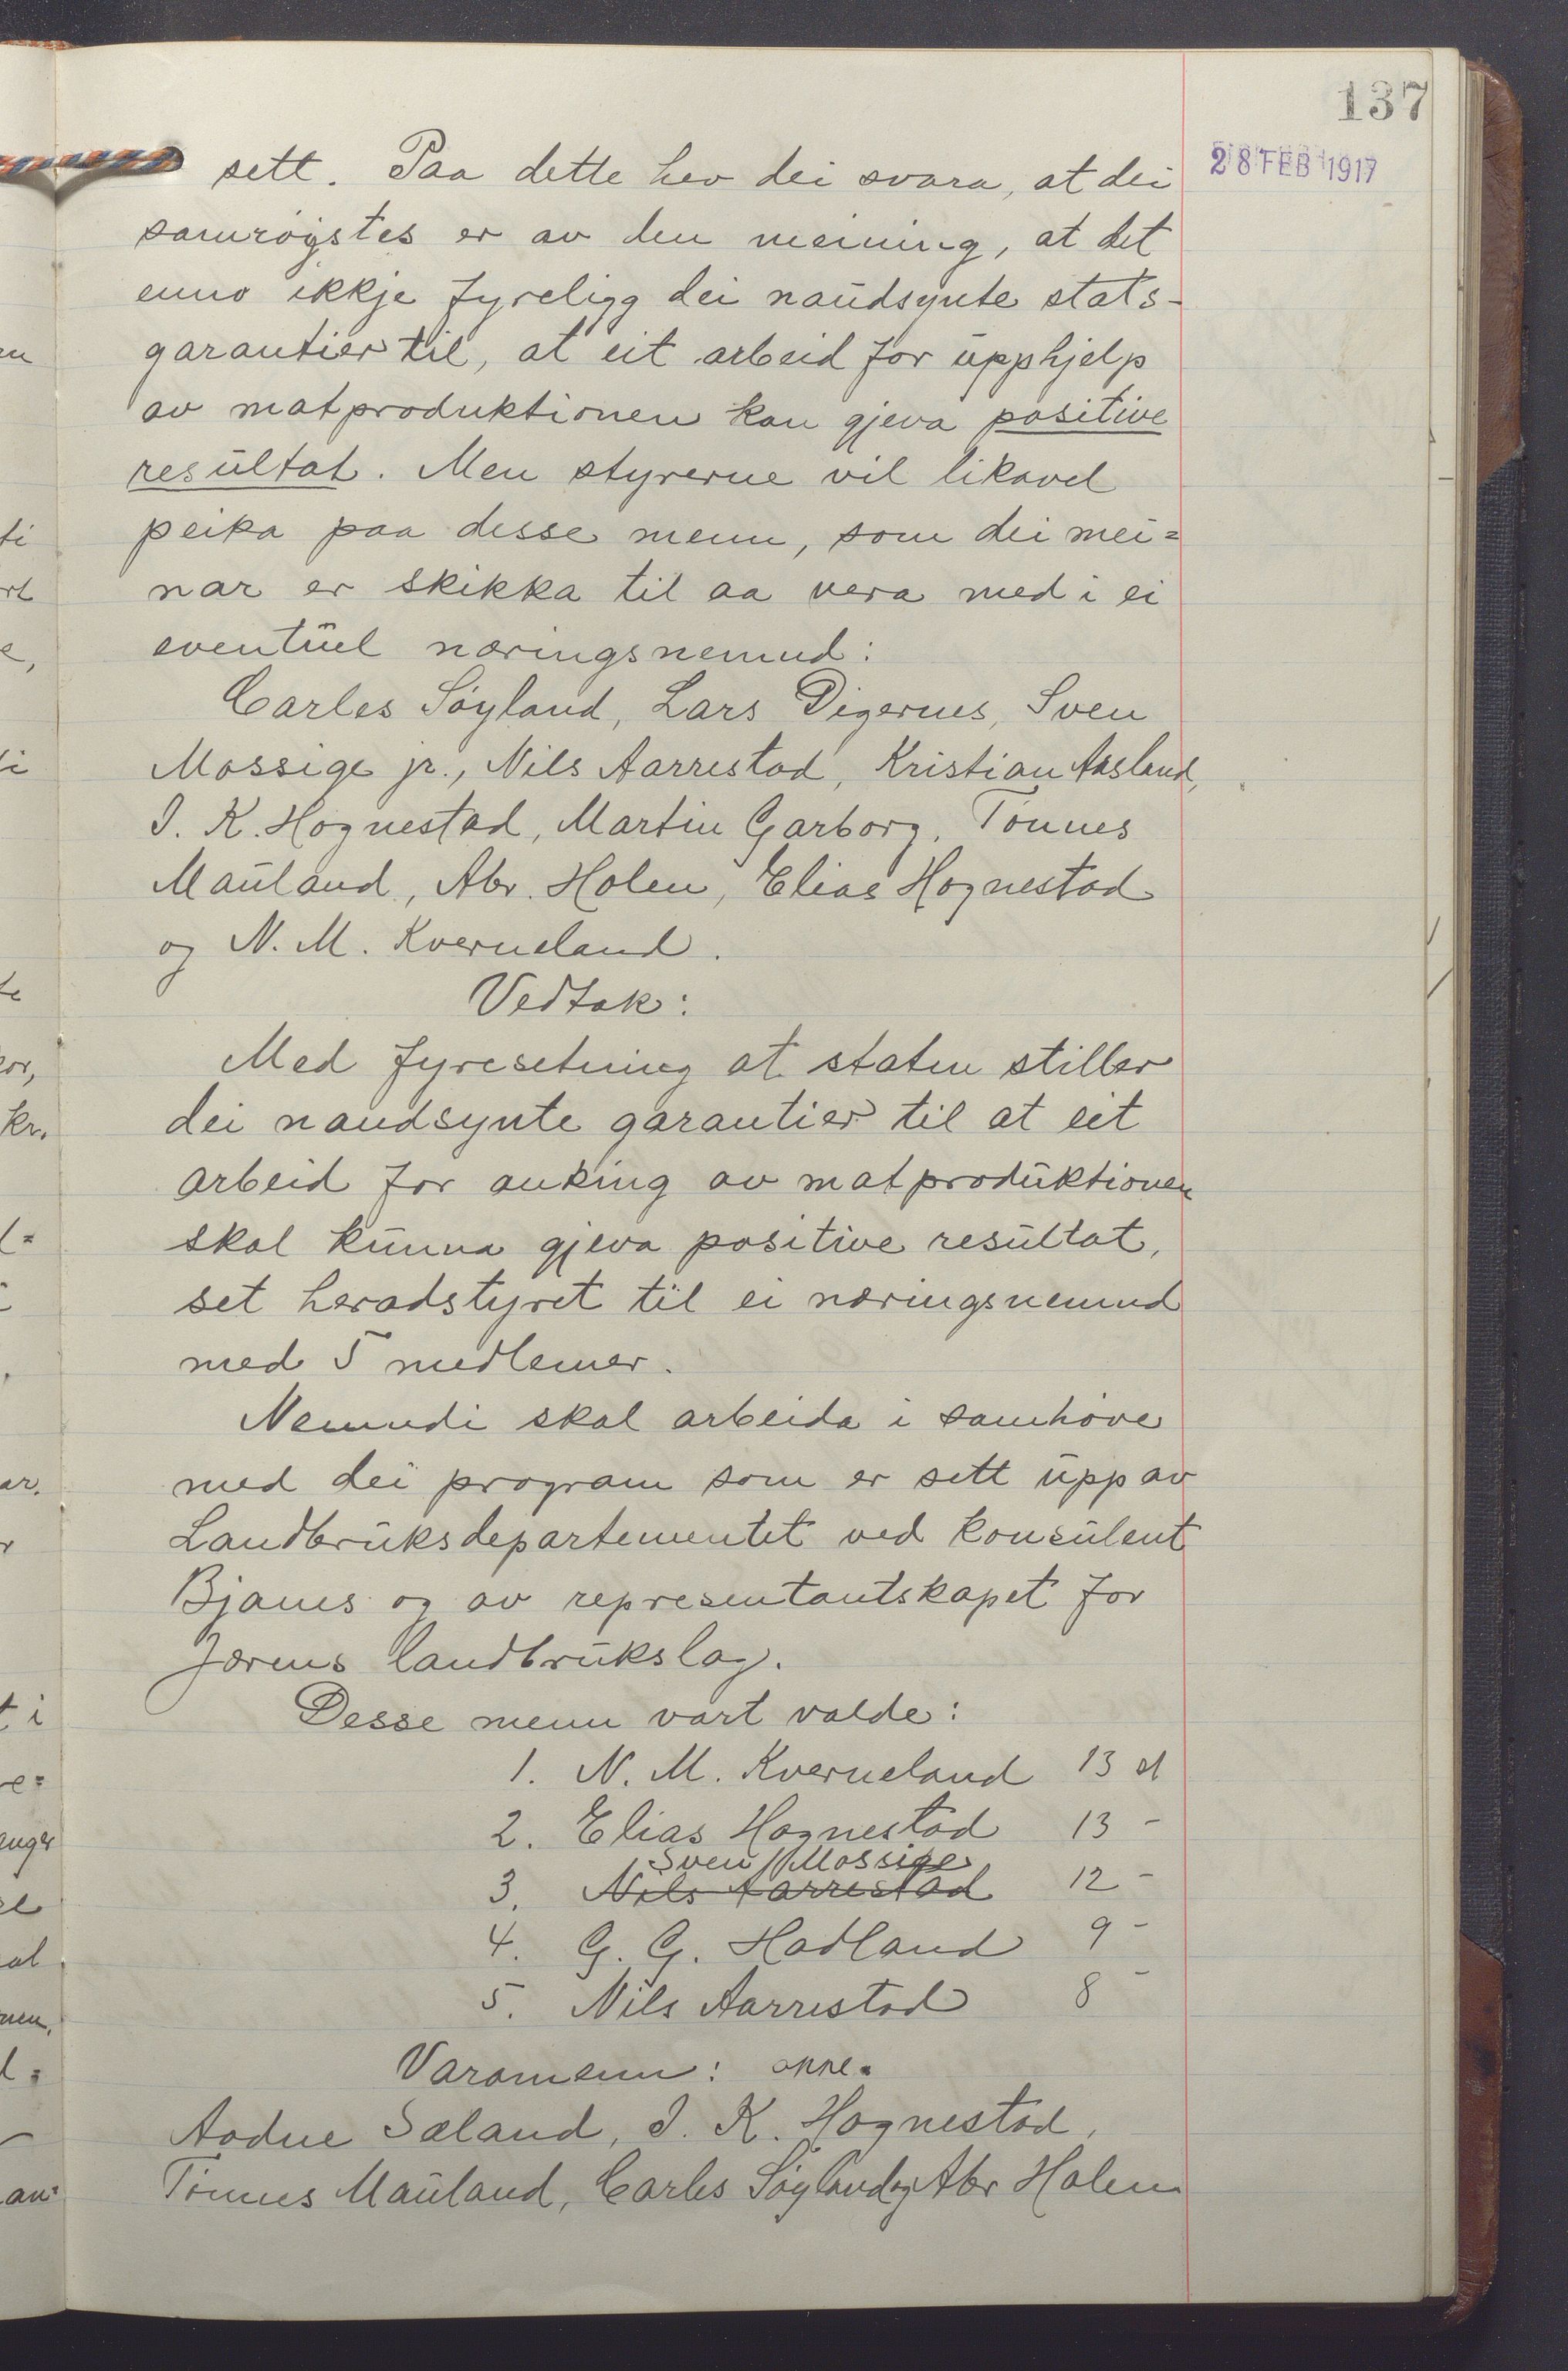 137
28 FEB 1917
sett. Paa dette hev dei svara, at dei
samrøystes er av den meining, at det
enno ikkje fyreligg dei naudsynte stats-
garantier til, at eit arbeid for upphjelp
av matproduktionen kan gjeva positive
resultat. Men styrerne vil likavel
peika paa desse menn, som dei mei=
nar er skikka til aa vera med i ei
eventuel næringsnemnd:
Carles Søyland, Lars Digernes, Sven
Mossige jr., Nils Aarrestad, Kristian Aasland,
I. K. Hognestad, Martin Garborg, Tønnes
Mauland, Abr. Holen, Elias Hognestad
og N. M. Kverneland.
Vedtak:
Med fyresetning at staten stiller
dei naudsynte garantier til at eit
arbeid for auking av matproduktionen
skal kunna gjeva positive resultat,
set heradstyret til ei næringsnemnd
med 5 medlemer.
Nemndi skal arbeida i samhøve
med dei program som er sett upp av
Landbruksdepartementet ved konsulent
Bjanes og av representantskapet for
Jærens landbrukslag.
Desse menn vart valde:
1. N. M. Kverneland 13 st
2. Elias Hognestad 13 -
Sven Mossige
3. Nils Aarrestad 12 -
4. G. G. Hadland 9 -
5. Nils Aarrestad 8 -
Varamenn:
Aadne Sæland, I. K. Hognestad,
Tønnes Mauland, Carles Søyland og Abr Holen